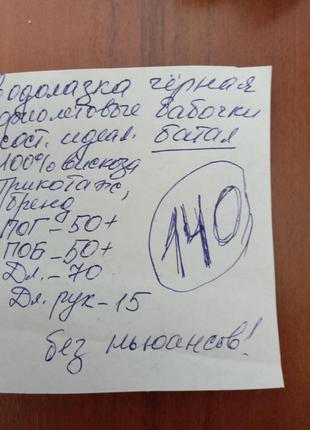 водолазка чёрная
фиолетовые бабочки
сост. идеал. батал
100% вискоза
трикотаж,
бренд
ПОГ - 50+
ПОБ - 50+
Дл. - 70
Дл. рук - 15
140
без ньюансов!